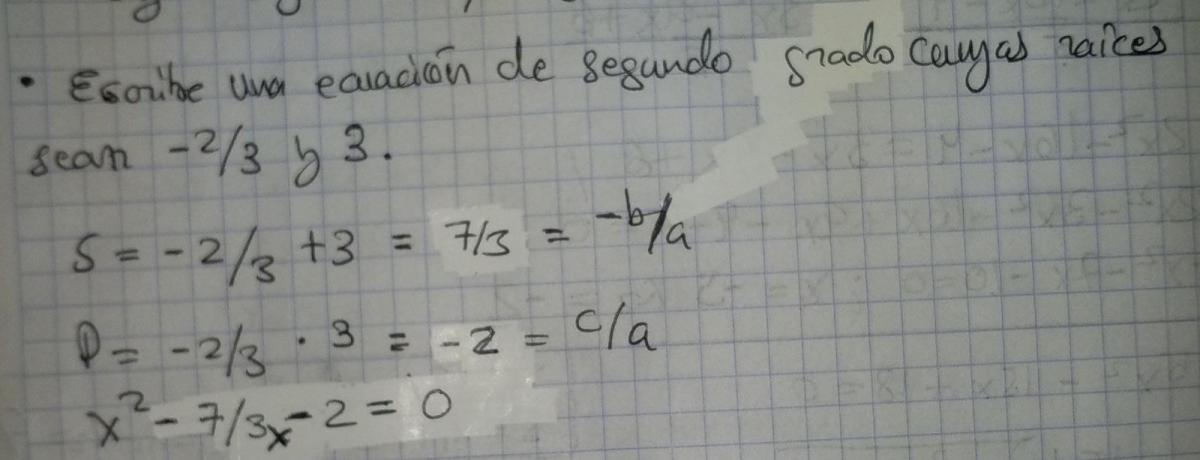 • Escribe una ecuación de segundo grado cuyas raíces
sean -2/3 y 3.
S = -2/3 + 3 = 7/3 = -b/a
P = -2/3 · 3 = -2 = c/a
x² - 7/3x - 2 = 0